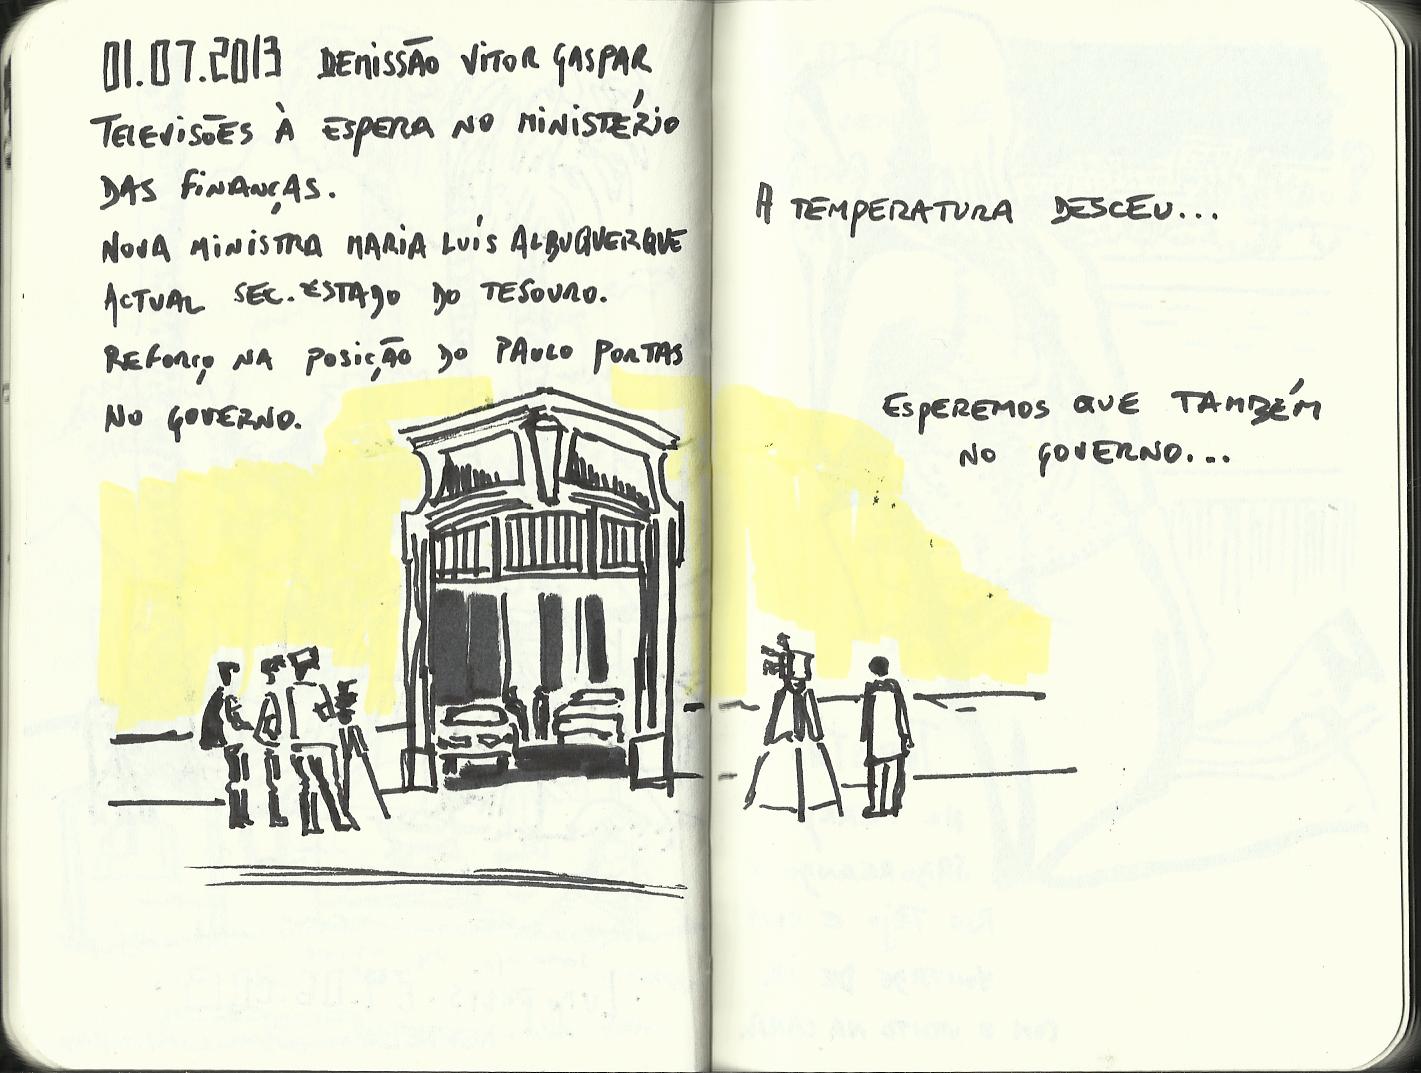 01.07.2013 DEMISSÃO VITOR GASPAR
TELEVISÕES À ESPERA NO MINISTÉRIO
DAS FINANÇAS.
NOVA MINISTRA MARIA LUÍS ALBUQUERQUE
ACTUAL SEC. ESTADO DO TESOURO.
REFORÇO NA POSIÇÃO DO PAULO PORTAS
NO GOVERNO.
A TEMPERATURA DESCEU...
ESPEREMOS QUE TAMBÉM
NO GOVERNO...